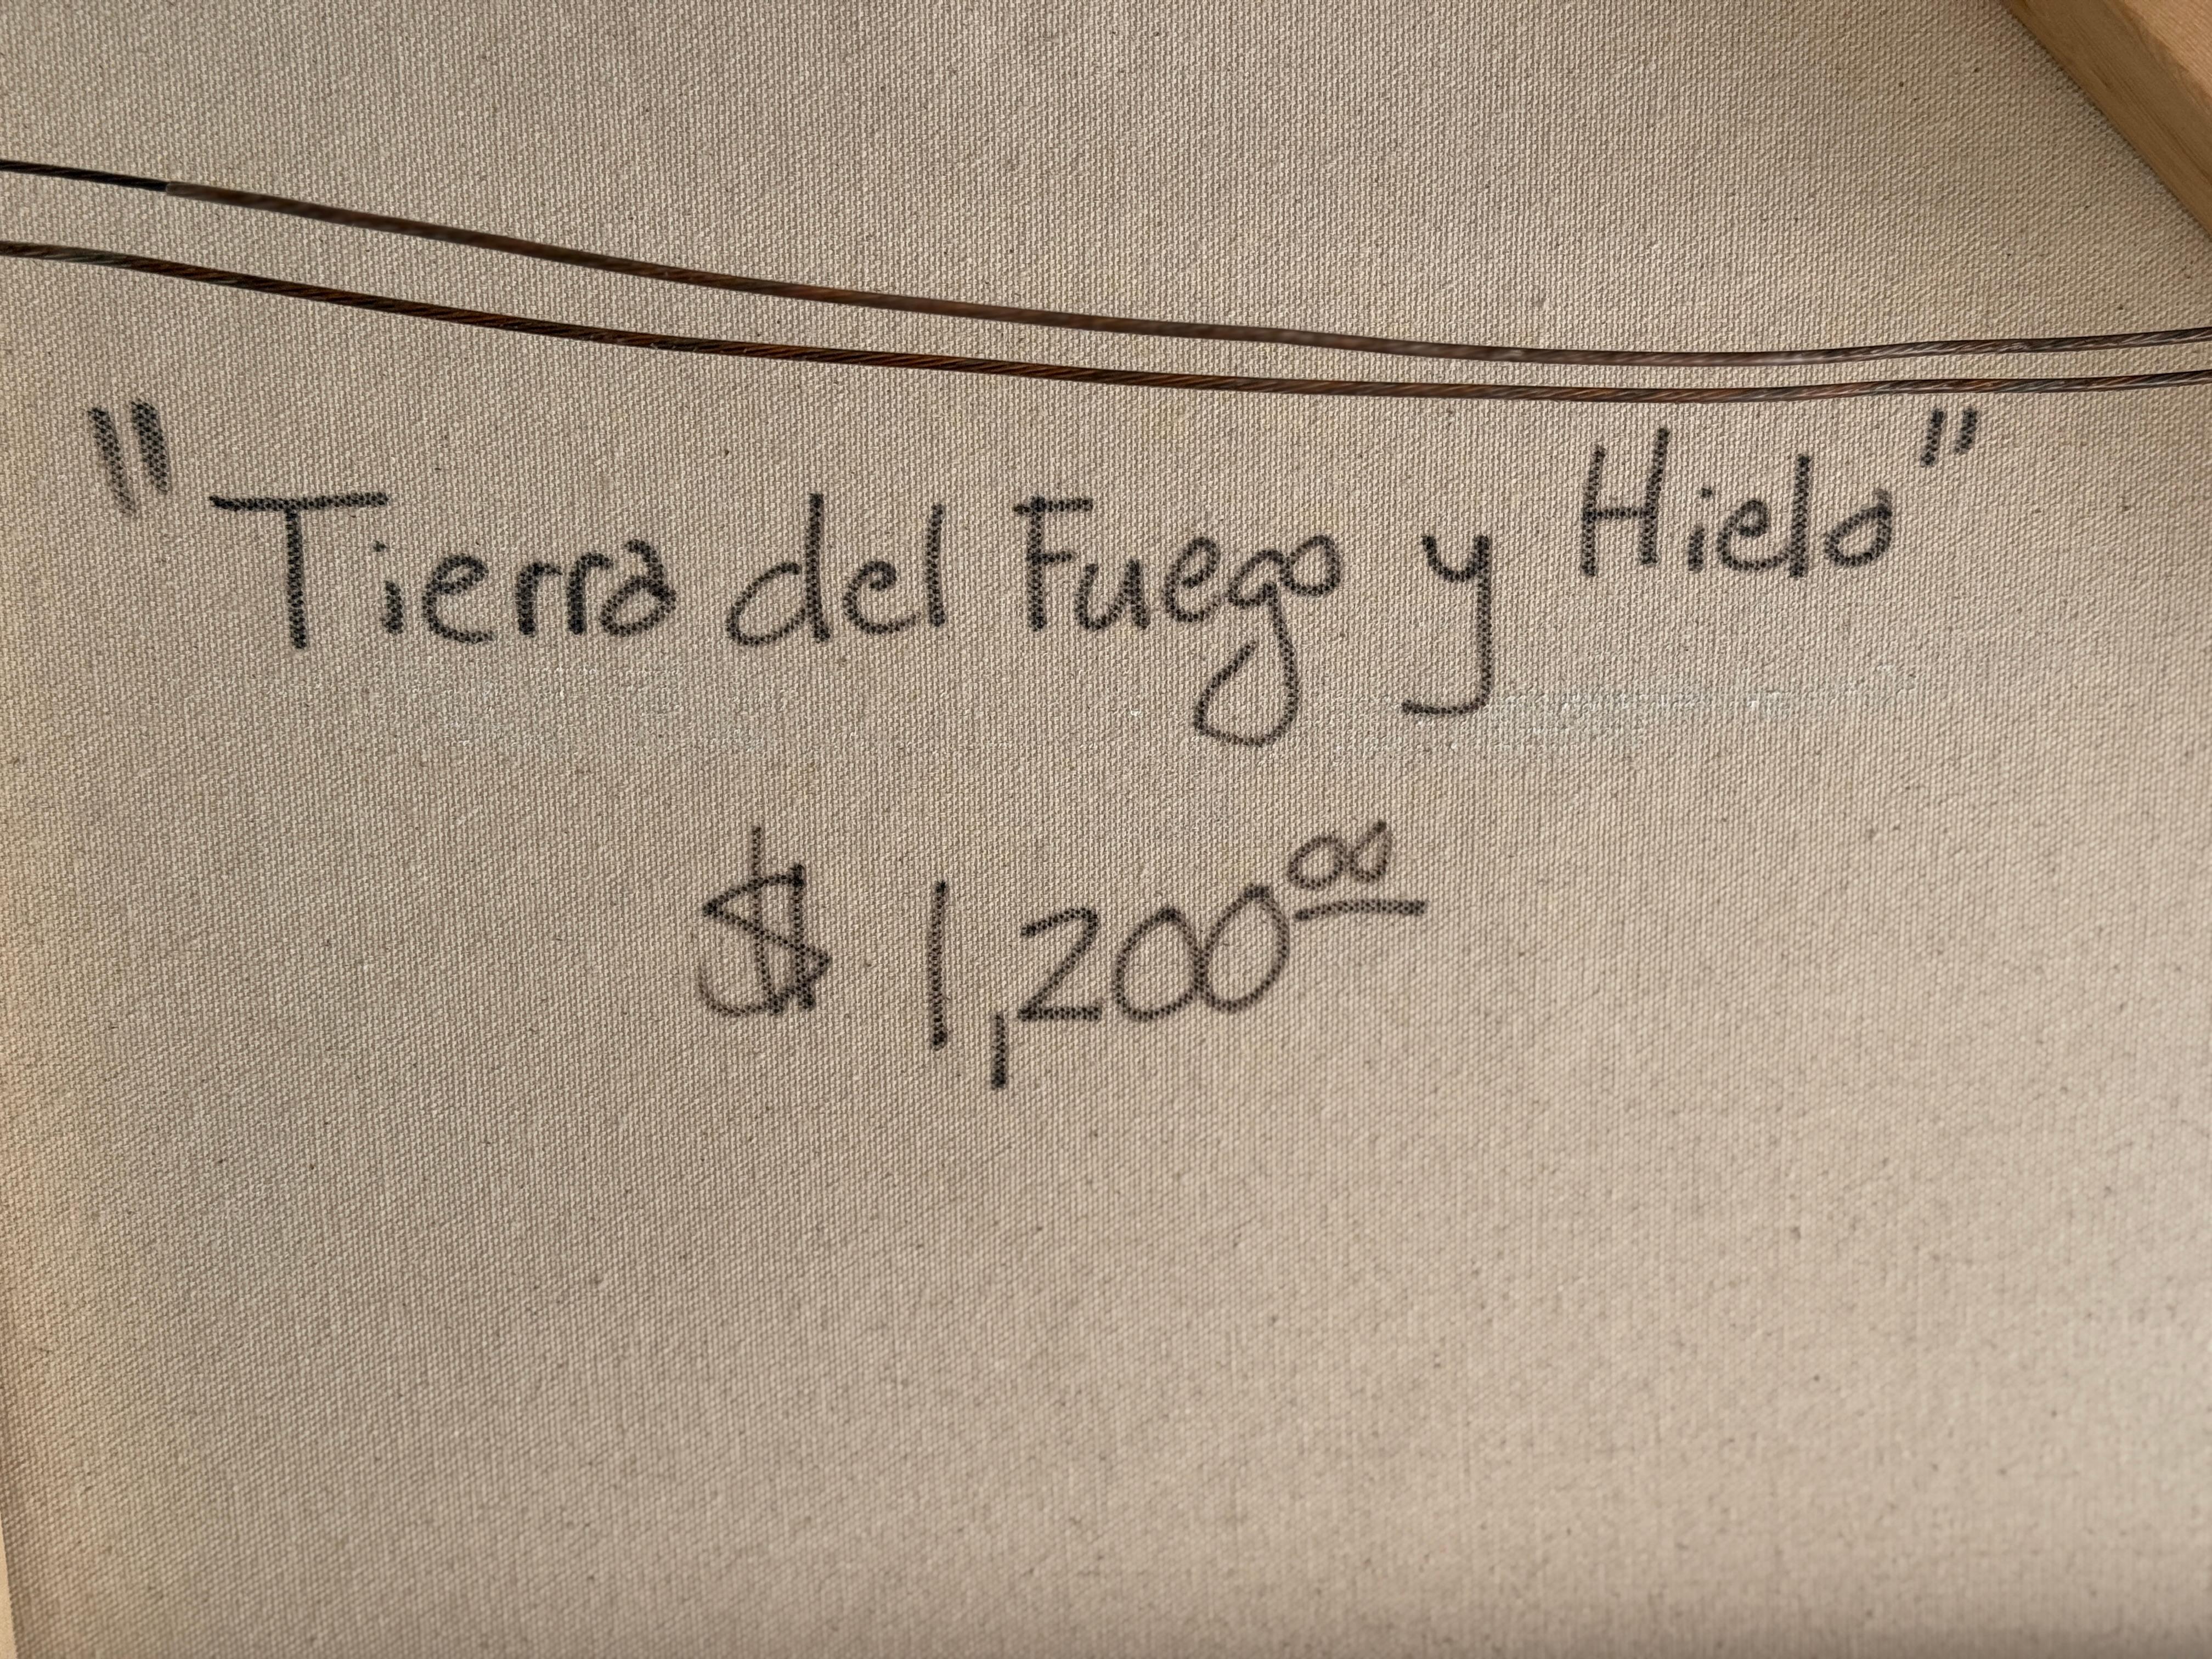 "Tierra del Fuego y Hielo"
$ 1,200.00